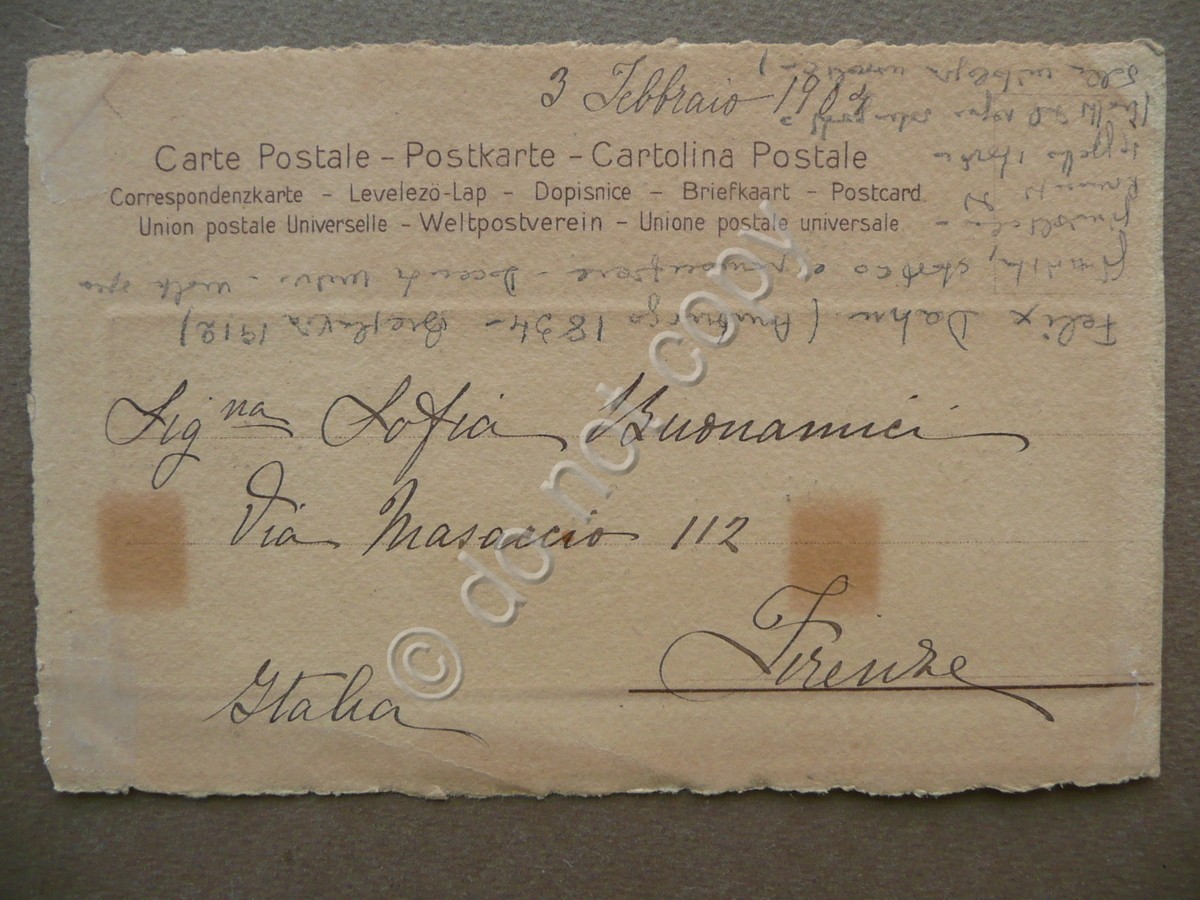 3 Febbraio 1904
Carte Postale – Postkarte – Cartolina Postale
Correspondenzkarte – Levelezö-Lap – Dopisnice – Briefkaart – Postcard
Union postale Universelle – Weltpostverein – Unione postale universale
Sig.na Sofia Buonamici
Via Masaccio 112
Firenze
Italia
Felix Dahn (Amburgo 1834 – Breslavia 1912)
giurista, storico e
© do not copy